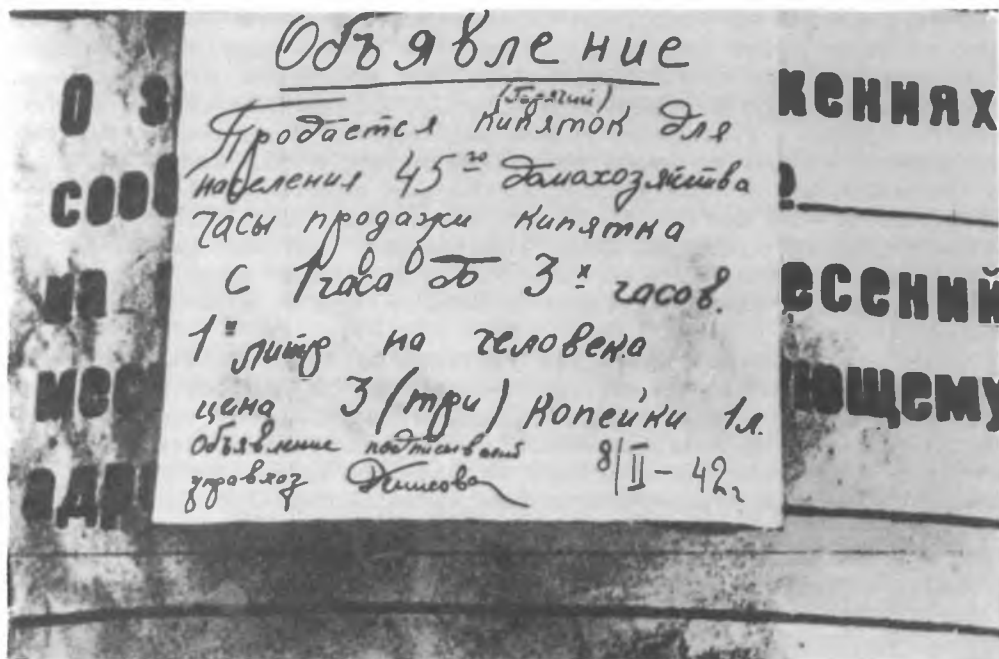 Объявление
(Горячий)
Продается кипяток для
населения 45го домахозяйства
часы продажи кипятка
с 1 часа до 3х часов.
1н литр на человека
цена 3 (три) копейки 1л.
объявление подписывал
управхоз Денисова 8/II – 42г
О З
СОО
НА
МЕС
АДР
КЕНИЯХ
ЕСЕНИЙ
ЮЩЕМУ